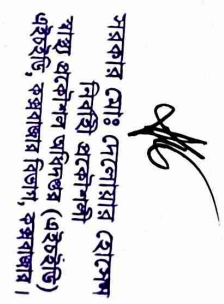 সরকার মোঃ দেলোয়ার হোসেন
নির্বাহী প্রকৌশলী
স্বাস্থ্য প্রকৌশল অধিদপ্তর (এইচইডি)
এইচইডি, কক্সবাজার বিভাগ, কক্সবাজার।